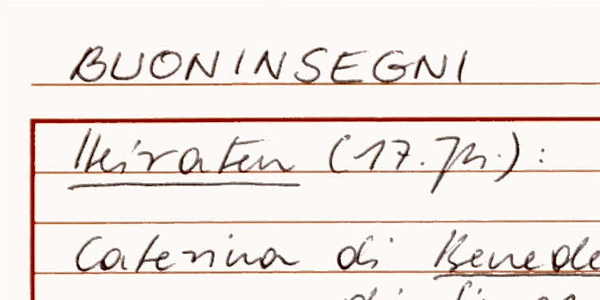 BUONINSEGNI
Heiraten (17. Jh.):
Caterina di Benede
di